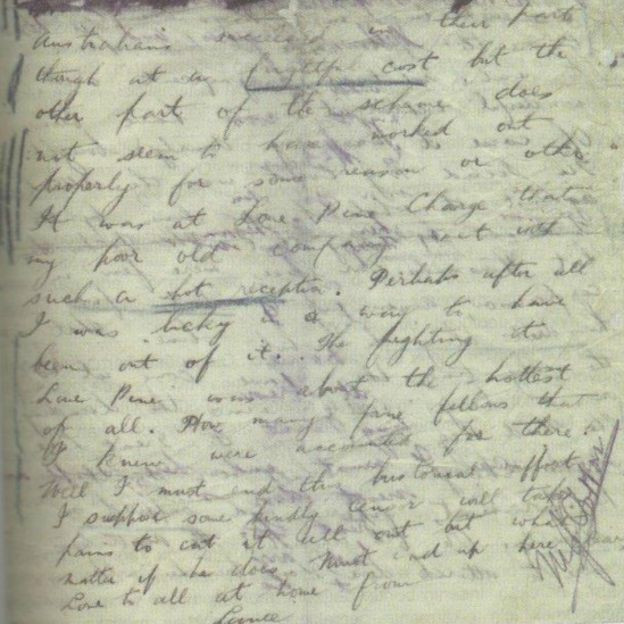 Australians succeeded in their part
though at an frightful cost but the
other part of the scheme does
not seem to have worked out
properly for some reason or other.
It was at Lone Pine Charge that
my poor old company met with
such a hot reception. Perhaps after all
I was lucky in a way to have
been out of it. The fighting at
Lone Pine was about the hottest
of all. How many fine fellows that
I knew were accounted for there.
Well I must end this historical effort
I suppose some kindly censor will take
pains to cut it all out but what
matter if he does. Must end up here
Love to all at home from
Lance